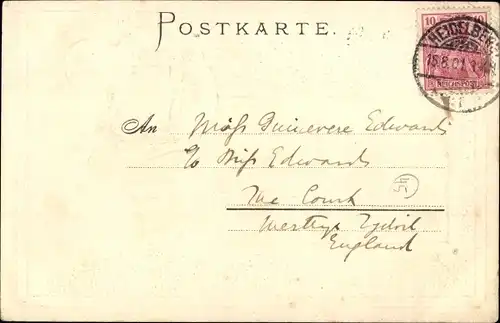 POSTKARTE.
10 10
HEIDELBERG
15.8.01
1
An Miss Guinevere Edwards
c/o Miss Edwards
The Court
England